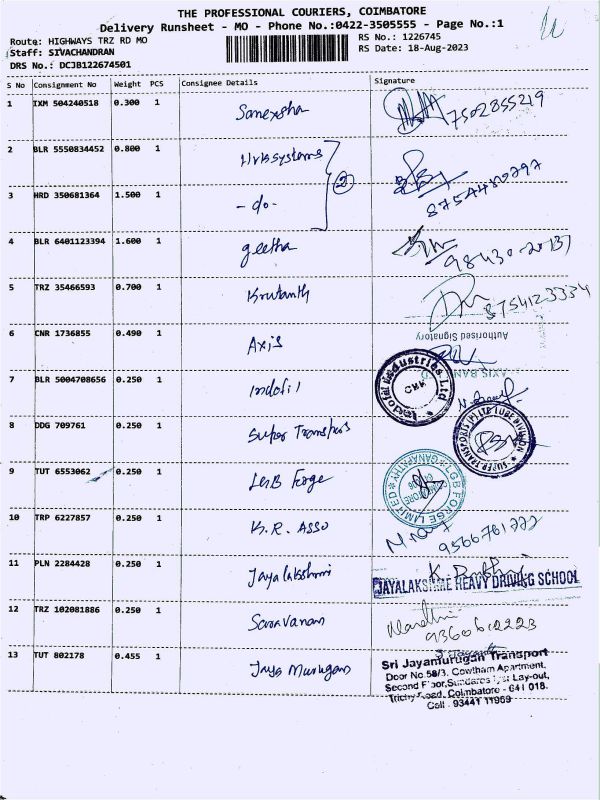 THE PROFESSIONAL COURIERS, COIMBATORE
Delivery Runsheet - MO - Phone No.:0422-3505555 - Page No.:1
Route: HIGHWAYS TRZ RD MO
RS No.: 1226745
Staff: SIVACHANDRAN
RS Date: 18-Aug-2023
DRS No.: DCJB122674501
S No Consignment No Weight PCS Consignee Details Signature
1 IXM 504240518 0.300 1
7502855219
2 BLR 5550834452 0.800 1 Hrbsystems
2
8754480797
3 HRD 350681364 1.500 1 -do-
4 BLR 6401123394 1.600 1 geetha
98430-20137
5 TRZ 35466593 0.700 1 Krutanth
8754123334
Authorised Signatory
6 CNR 1736855 0.490 1 Axis
AXIS BAN
7 BLR 5004708656 0.250 1 Indofil
Industries Ltd
8 DDG 709761 0.250 1 Super Transports
SUPER TRANSPORTS (P) LTD LUBE DIVISION
9 TUT 6553062 0.250 1 LGB Forge
LGB FORGE LIMITED
GANAPATHY
10 TRP 6227857 0.250 1 K.R. ASSO
9566761772
11 PLN 2284428 0.250 1 Jayalakshmi
JAYALAKSHME HEAVY DRIVING SCHOOL
12 TRZ 102081886 0.250 1 Saravanan
9360612223
13 TUT 802178 0.455 1 Jaya Murugan
Sri Jayamurugan Transport
Door No.58/3, Cowtham Apartment,
Second Floor, Lay-out,
Trichy Road, Coimbatore - 641 018.
Call : 93441 11969